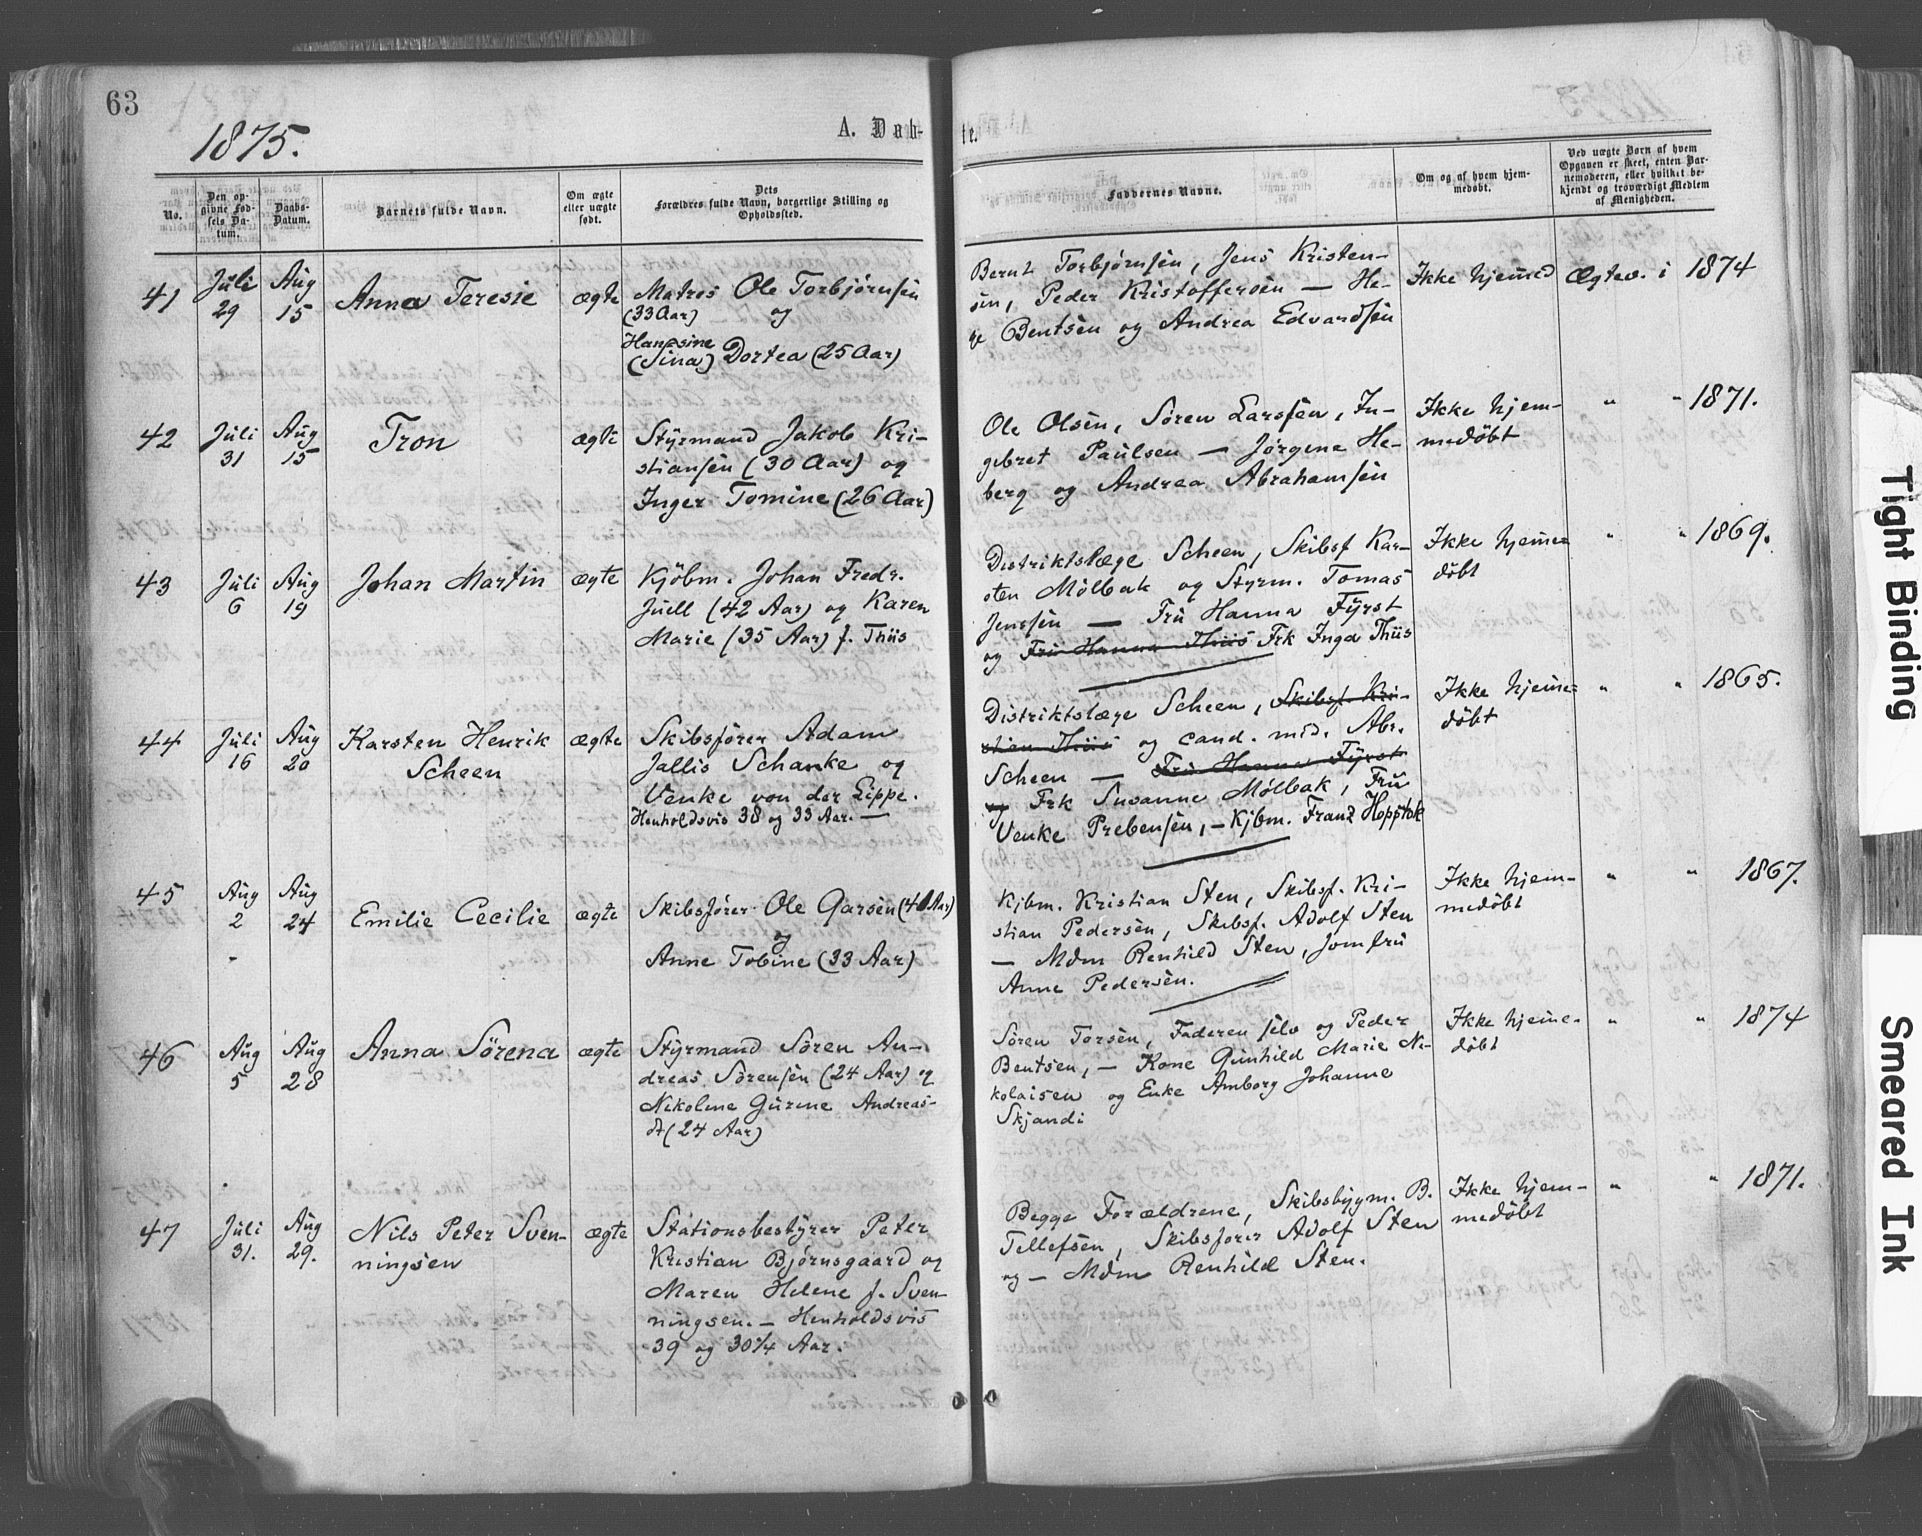 63
1875.
A. Døb-
te.
No.
Den op-
givne Fød-
sels Da-
tum.
Daabs-
Datum.
Barnets fulde Navn.
Om ægte
eller uægte
født.
Dets
Forældres fulde Navn, borgerlige Stilling og
Opholdssted.
Faddernes Navne.
Om og af hvem hjem-
medøbt.
Ved uægte Børn af hvem
Opgaven er skeet, enten Bar-
nemoderen, eller hvilket be-
kjendt og troværdigt Medlem
af Menigheden.
41
Juli
29
Aug
15
Anna Teresie
ægte
Matros Ole Torbjørnsen
(33 Aar) og
Hansine
(Sina) Dortea (25 Aar)
Bernt Torbjørnsen, Jens Kristen-
sen, Peder Kristoffersen — He-
ge Bentsen og Andrea Edvardsen
Ikke hjemmed
Ægtev. i 1874
42
Juli
31
Aug
15
Tron
ægte
Styrmand Jakob Kri-
stiansen (30 Aar) og
Inger Tomine (26 Aar)
Ole Olsen, Søren Larsen, In-
gebret Paulsen — Jørgene He-
berg og Andrea Abrahamsen
Ikke hjem-
medøbt
" " 1871.
43
Juli
6
Aug
19
Johan Martin
ægte
Kjøbm. Johan Fredr.
Juell (42 Aar) og Karen
Marie (35 Aar) f. Thiis
Distriktslæge Scheen, Skibsf Kar-
sten Mølbak og Styrm. Tomas
Jenssen — Fru Hanna Fyrst
og Fru Hanna Thiis Frk Inga Thiis
Ikke hjemme-
døbt
" " 1869.
44
Juli
16
Aug
20
Karsten Henrik
Scheen
ægte
Skibsfører Adam
Jallis Schanke og
Venke von der Lippe.
Henholdsvis 38 og 33 Aar. —
Distriktslæge Scheen, Skibsf. Kri-
stian Thiis og cand. med. Abr.
Scheen — Fru Hanna Fyrst
og Frk Susanne Mølbak, Fru
Venke Prebensen, — Kjbm. Franz Hopstok
Ikke hjemme-
døbt
" " 1865.
45
Aug
2
Aug
24
Emilie Cecilie
ægte
Skibsfører Ole Garsen (40 Aar)
og
Anne Tobine (33 Aar)
Kjbm. Kristian Sten, Skibsf. Kri-
stian Pedersen, Skibsf. Adolf Sten
— Mdm Renhild Sten, Jomfru
Anne Pedersen.
Ikke hjem-
medøbt
" " 1867.
46
Aug
5
Aug
28
Anna Sørena
ægte
Styrmand Søren An-
dreas Sørensen (24 Aar) og
Nikoline Gurine Andreas-
dt (24 Aar)
Søren Torsen, Faderen selv og Peder
Bentsen, — Kone Gunhild Marie Ni-
kolaisen og Enke Amborg Johanne
Skjandi
Ikke hjemme-
døbt
" " 1874
47
Juli
31.
Aug
29.
Nils Peter Sven-
ningsen
ægte
Stationsbestyrer Peter
Kristian Bjørnsgaard og
Maren Helene f. Sven-
ningsen. — Henholdsvis
39 og 30¼ Aar.
Begge Forældrene, Skibsbygm. B.
Tellefsen, Skibsfører Adolf Sten
og — Mdm Renhild Sten.
Ikke hjem-
medøbt
" " 1871.
Tight Binding
Smeared Ink